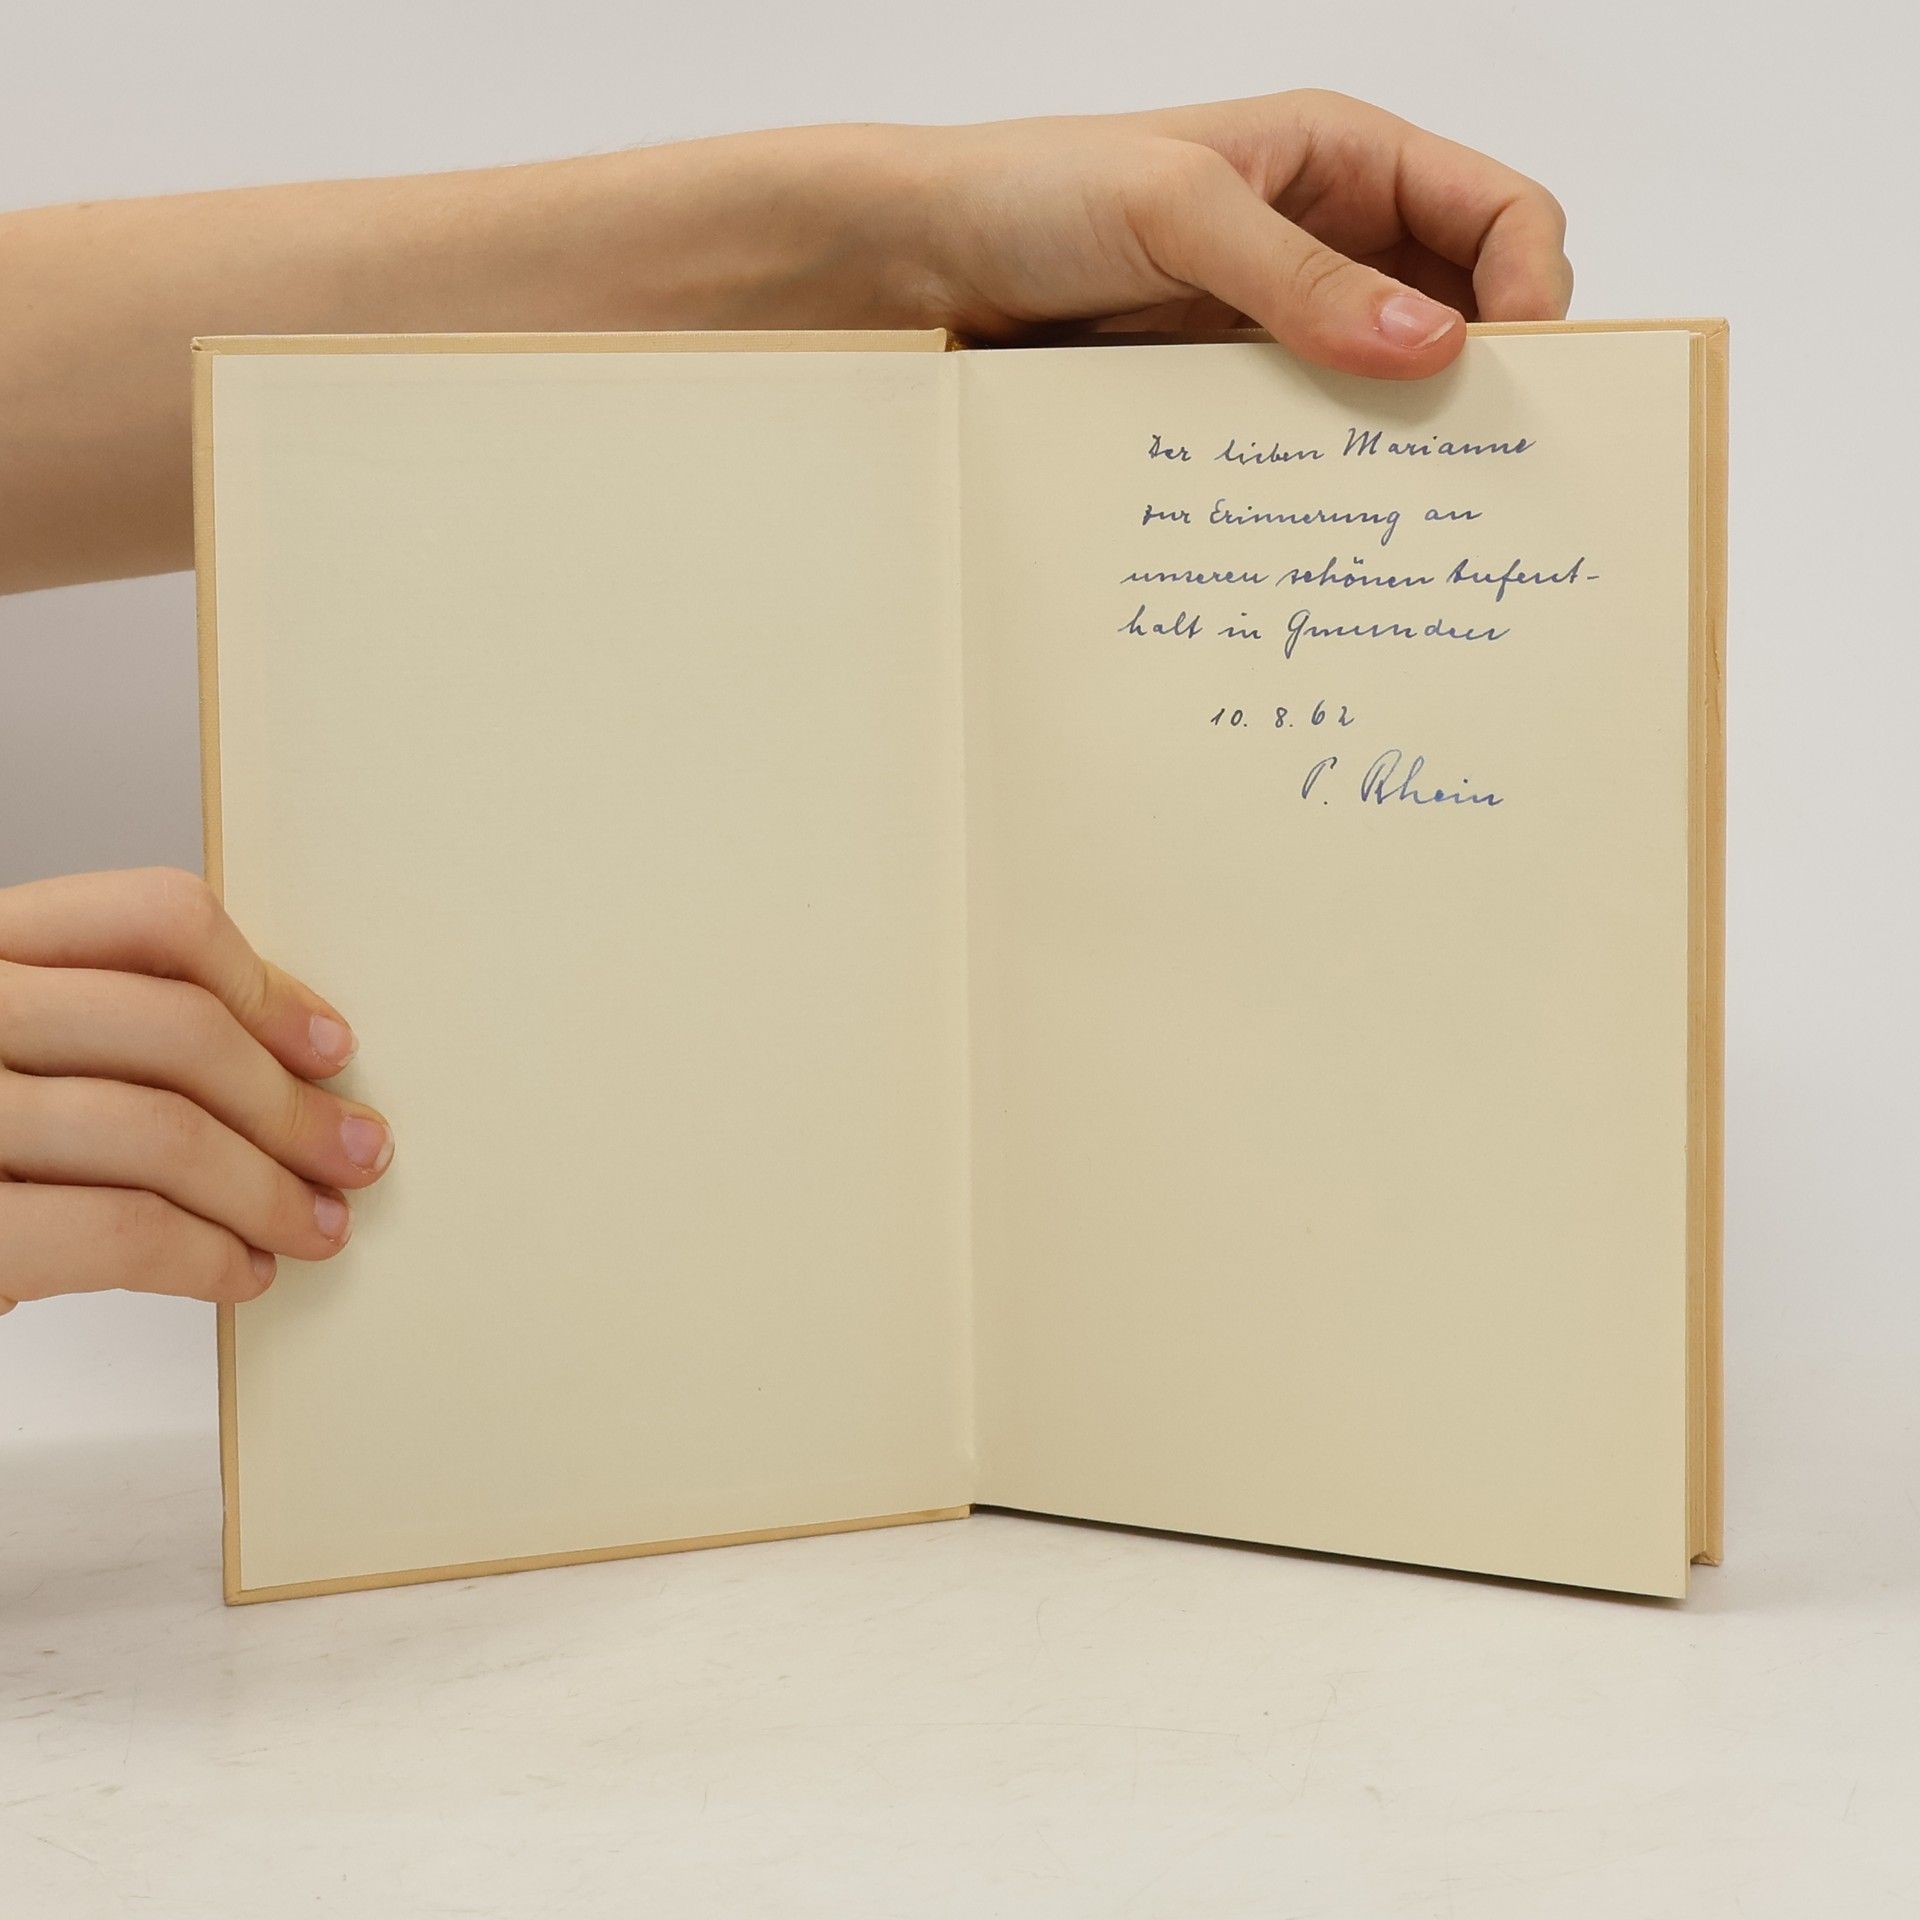 Der lieben Marianne
zur Erinnerung an
unseren schönen Aufent-
halt in Gmunden
10. 8. 62
P. Rhein